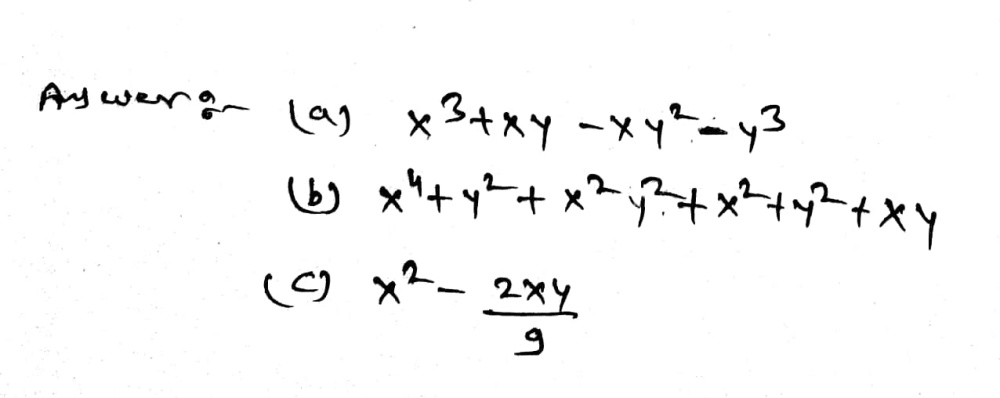 Answer:- (a) x³+xy -xy²-y³
(b) x⁴+y²+x²y²+x²+y²+xy
(c) x² - 2xy/9